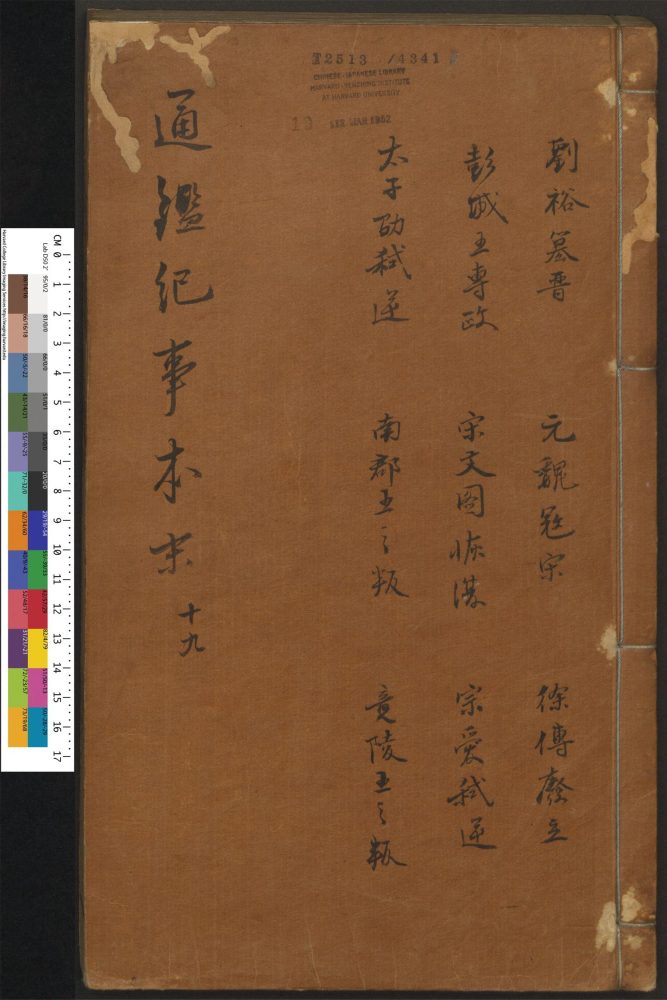 劉裕篡晋 元魏寇宋 徐傅廢立
彭城王專政 宋文圖恢復 宗愛弒逆
太子劭弒逆 南郡王之叛 竟陵王之叛
通鑑紀事本末 十九
T2513 /4341
CHINESE-JAPANESE LIBRARY
HARVARD-YENCHING INSTITUTE
AT HARVARD UNIVERSITY
MAR 1952
CM 0 1 2 3 4 5 6 7 8 9 10 11 12 13 14 15 16 17